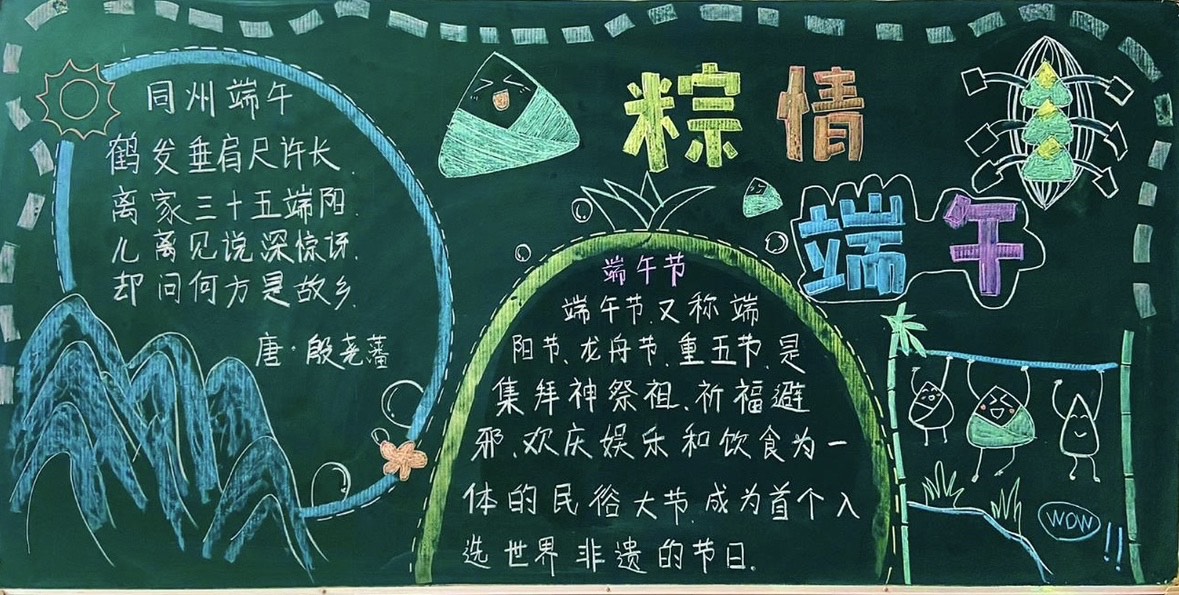 同州端午
鹤发垂肩尺许长.
离家三十五端阳.
儿离见说深惊讶.
却问何方是故乡.
唐·殷尧藩
粽情
端午
端午节
端午节、又称端
阳节、龙舟节、重五节、是
集拜神祭祖、祈福避
邪、欢庆娱乐和饮食为一
体的民俗大节.成为首个入
选世界非遗的节日.
WOW!!